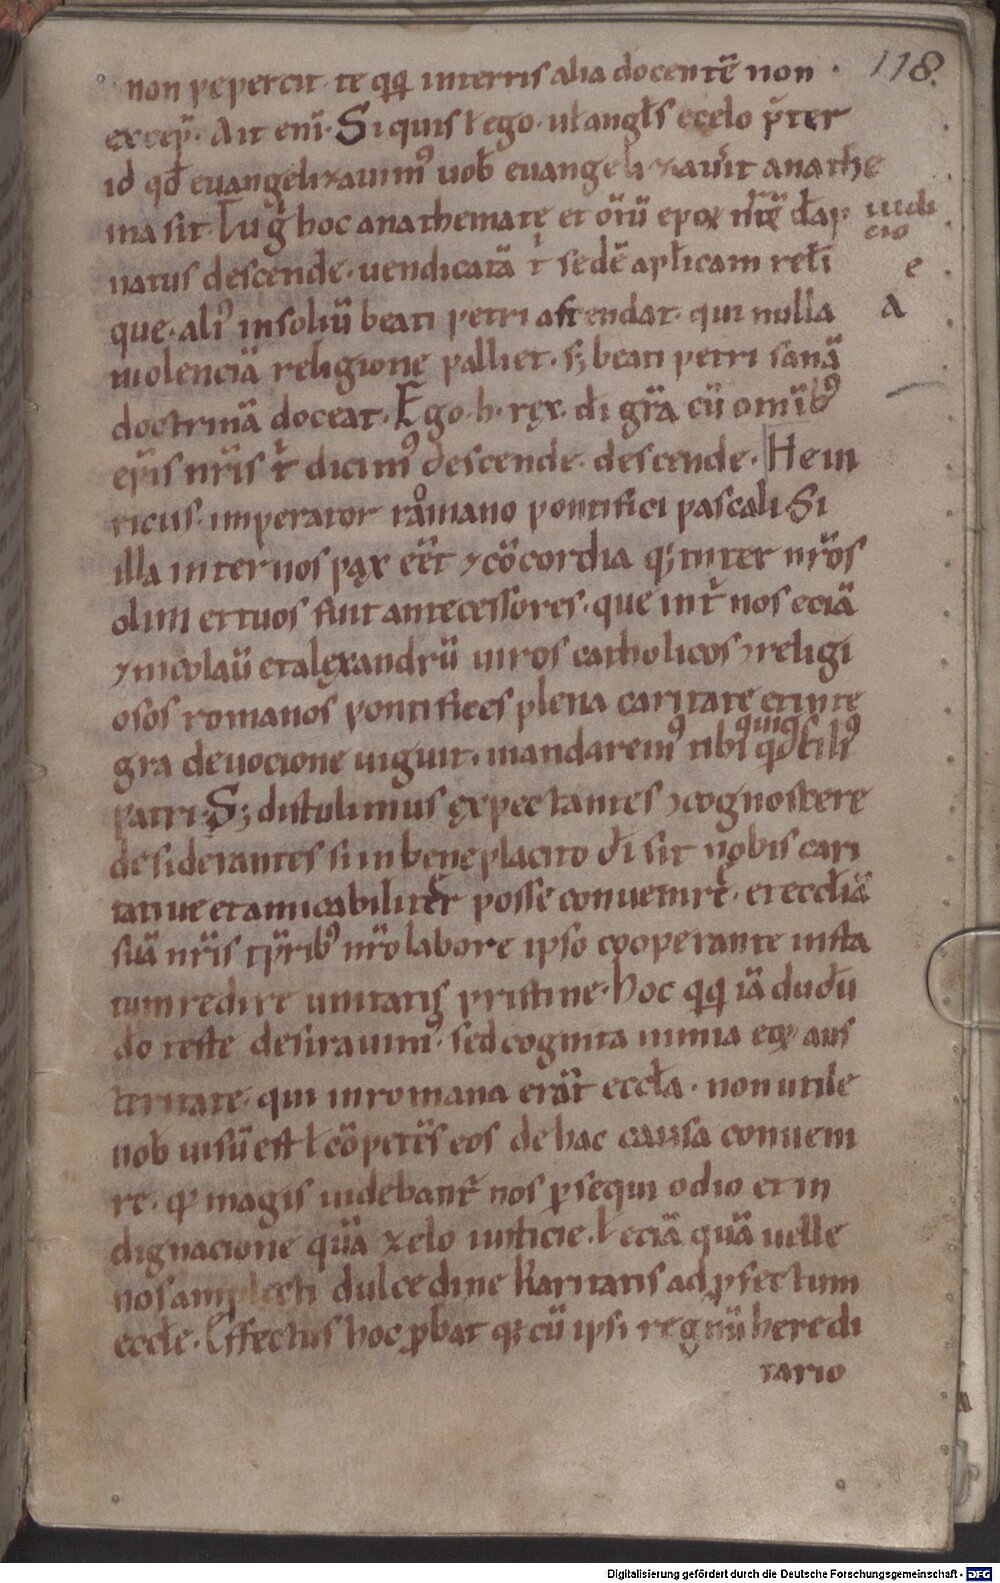 118.
non pepercit te qq; interris alia docentē non ·
excep̄. Ait eni̅. Si quis ł ego. ut angl̄s ecelo p̄ter
id qđ euangelizauim᾽ uob̄ euangelizau̅it anathe
ma sit. Tu g̊ hoc anathemate et om̄iū epoꝝ nr̄oꝝ dāp iudi
cio
natus descende. uendicatā t̊ sedē apl̄icam reli e
que. ali᾽ insoliū beati petri ascendat. qui nulla A
uiolenciā religione palliet. sꝫ beati petri sanā
doctrinā doceat. Ego. h. rex. di gr̄a cū omīb᾽
ep̄is nr̄is t̊ dicim᾽ descende. descende. Hein
ricus. imperator romano pontifici pascali. Si
illa inter nos pax eēt ⁊ cōcordia qꝫ inter nr̄os
olim et tuos fuit antecessores. que int̄ nos eciā
⁊ nicolaū et alexandrū uiros catholicos ⁊ religi
osos romanos pontifices plena caritate et inte
gra deuocione uiguit. mandarem᾽ tibi quicqđ fili᾽
patri. Sꝫ distulimus expectantes ⁊ cognoscere
desiderantes si in beneplacito di sit nobis cari
tatiue et amicabiliter posse conuenire. et eccl̄iā
suā nr̄is tp̄rib᾽ nr̄o labore ipso cooperante insta
tum redire unitatis pristine. hoc qq; iā dudū
do teste desirauim᾽. sed cognita nimia eoꝝ aus
teritate. qui in romana erāt eccl̄a. non utile
nob̄ uisū est ł cōpetēs eos de hac causa conueni
re. qꝫ magis uidebant᾽ nos ꝑsequi odio et in
dignacione quā zelo iusticie. ł eciā quā uelle
nos amplecti dulcedine karitatis ad ꝓfectum
eccl̄e. Effectus hoc ꝓbat qꝫ cū ipsi regnū heredi
tario
Digitalisierung gefördert durch die Deutsche Forschungsgemeinschaft - DFG